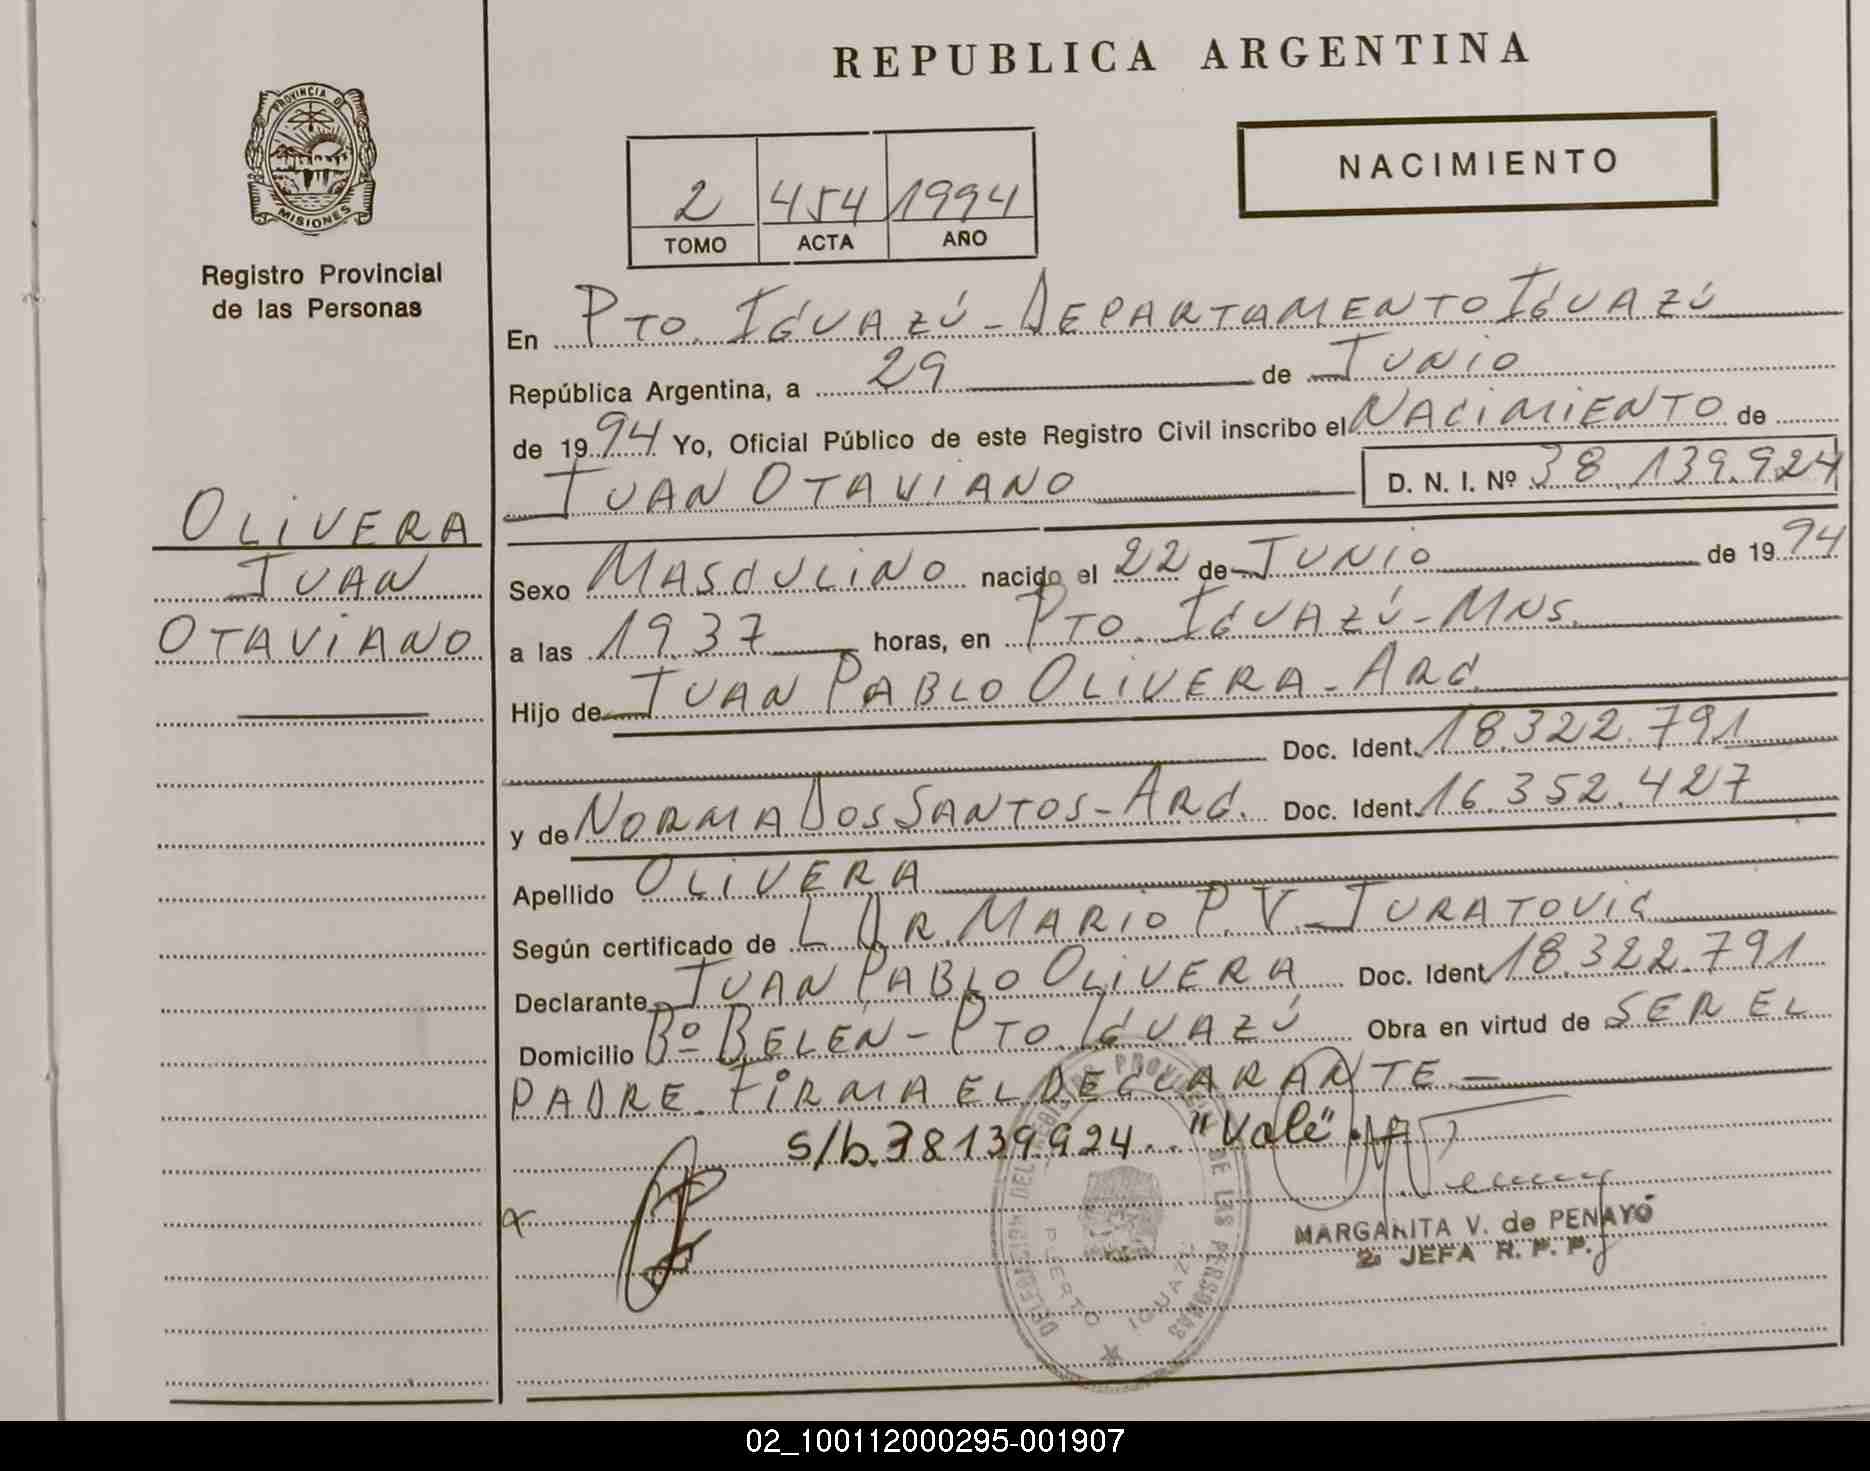 REPUBLICA ARGENTINA
PROVINCIA DE
MISIONES
Registro Provincial
de las Personas
NACIMIENTO
2 454 1994
TOMO ACTA AÑO
En PTO. IGUAZÚ - DEPARTAMENTO IGUAZÚ
República Argentina, a 29 de JUNIO
de 1994 Yo, Oficial Público de este Registro Civil inscribo el NACIMIENTO de
JUAN OTAVIANO D. N. I. Nº 38.139.924
OLIVERA
JUAN
OTAVIANO
Sexo MASCULINO nacido el 22 de JUNIO de 1994
a las 19.37 horas, en PTO. IGUAZÚ - MNS.
Hijo de JUAN PABLO OLIVERA - ARG.
Doc. Ident. 18.322.791
y de NORMA DOS SANTOS - ARG. Doc. Ident. 16.352.427
Apellido OLIVERA
Según certificado de L DR. MARIO P. V. JURATOVIC
Declarante JUAN PABLO OLIVERA Doc. Ident. 18.322.791
Domicilio Bº BELÉN - PTO. IGUAZÚ Obra en virtud de SER EL
PADRE. FIRMA EL DECLARANTE. —
s/b. 38139924.. "Vale".
MARGARITA V. de PENAYO
2ª JEFA R. P. P.
DELEGACION DEL REGISTRO PROVINCIAL DE LAS PERSONAS
PUERTO IGUAZU
02_100112000295-001907